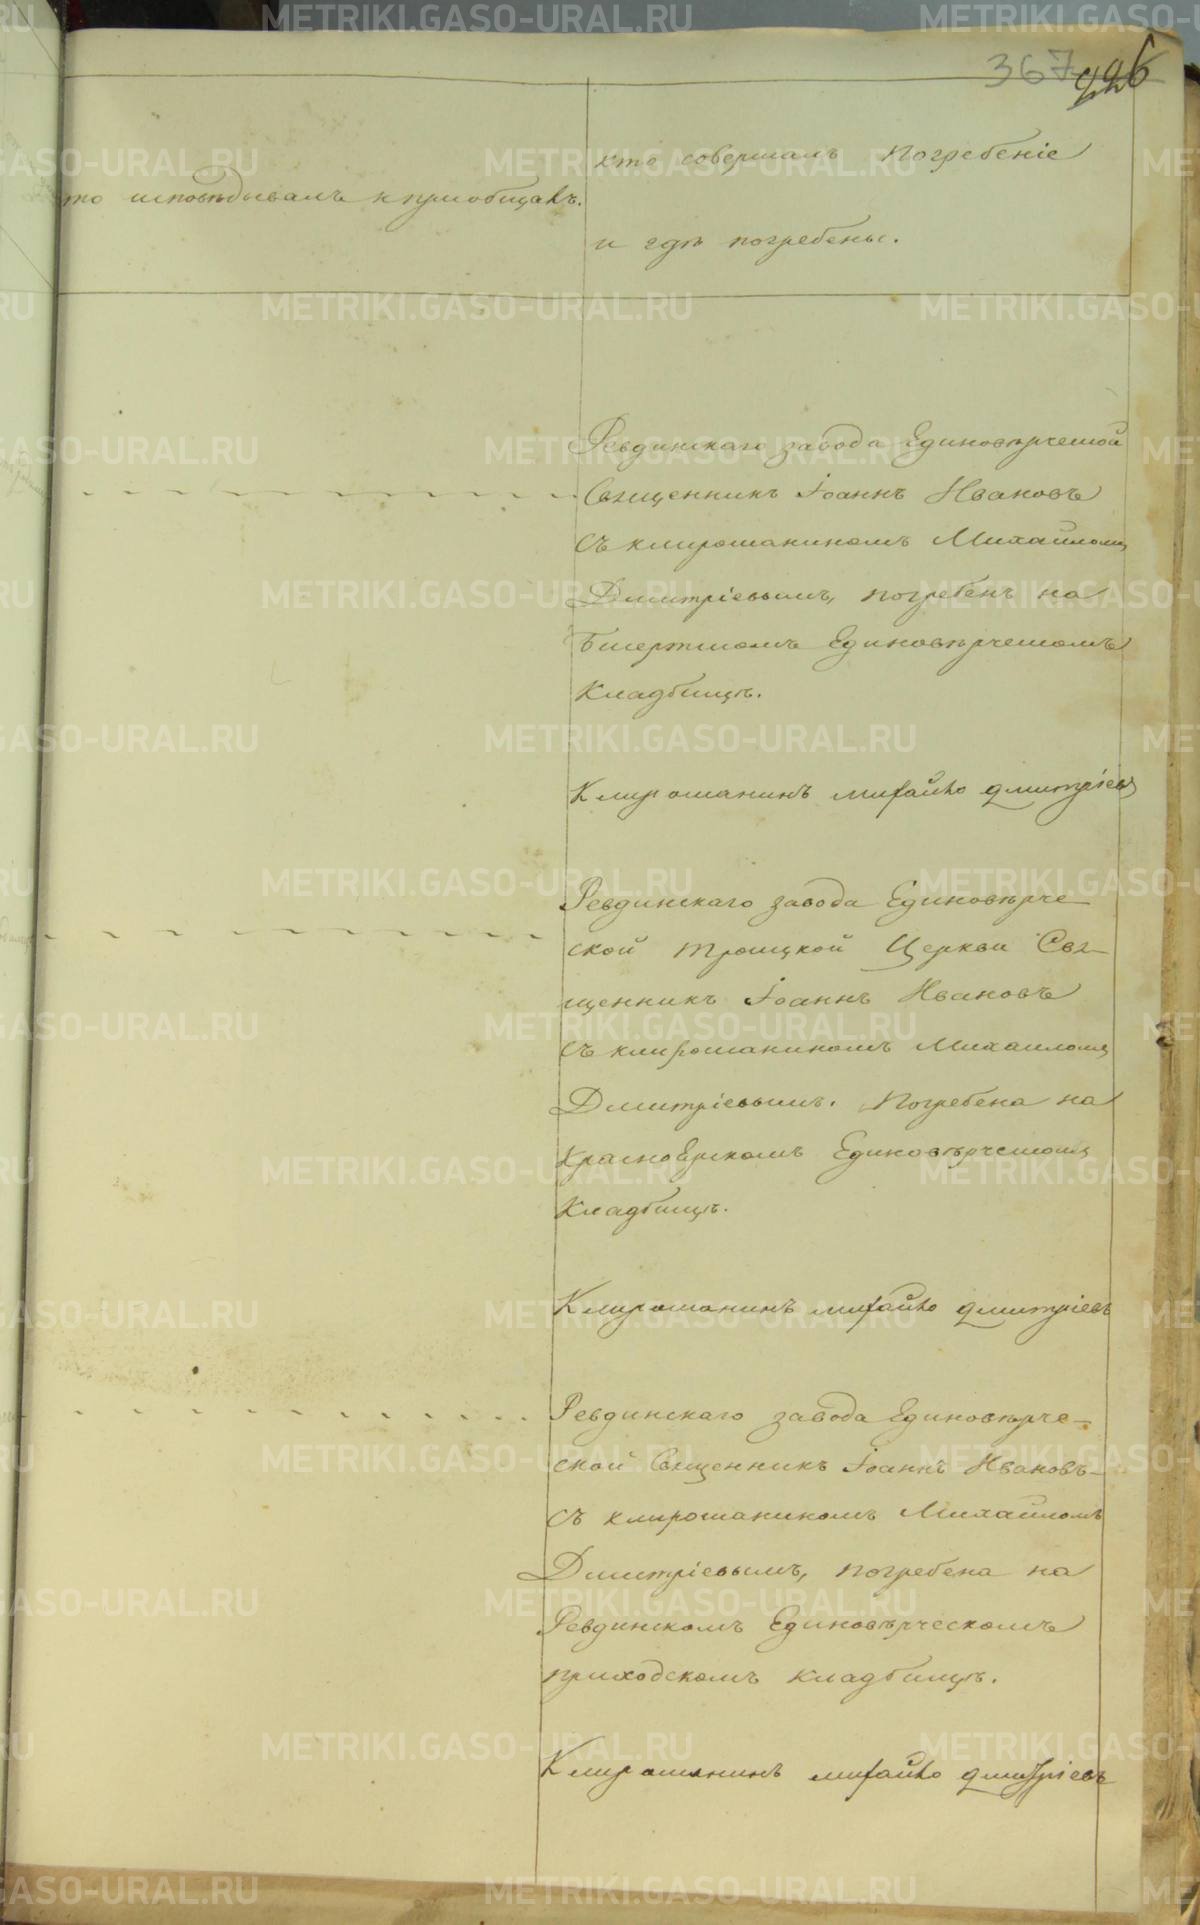 367 226
кто совершалъ Погребеніе
то исповѣдывалъ и приобщалъ.
и гдѣ погребены.
Ревдинскаго завода Единовѣрческой
Священникъ Іоаннъ Ивановъ
съ клирошаниномъ Михайломъ
Дмитріевымъ, погребенъ на
Бисертскомъ Единовѣрческомъ
Кладбищѣ.
Клирошанинъ михайло дмитріевъ
Ревдинскаго завода Единовѣрче-
ской троицкой Церкви Свя-
щенникъ Іоаннъ Ивановъ
съ клирошаниномъ Михаиломъ
Дмитріевымъ. Погребена на
Красноярскомъ Единовѣрческомъ
Кладбищѣ.
Клирошанинъ михайло дмитріевъ
Ревдинскаго завода Единовѣрче-
ской Священникъ Іоаннъ Ивановъ
съ клирошаниномъ Михайломъ
Дмитріевымъ, погребена на
Ревдинскомъ Единовѣрческомъ
приходскомъ кладбищѣ.
Клирошанинъ михайло дмитріевъ
METRIKI.GASO-URAL.RU